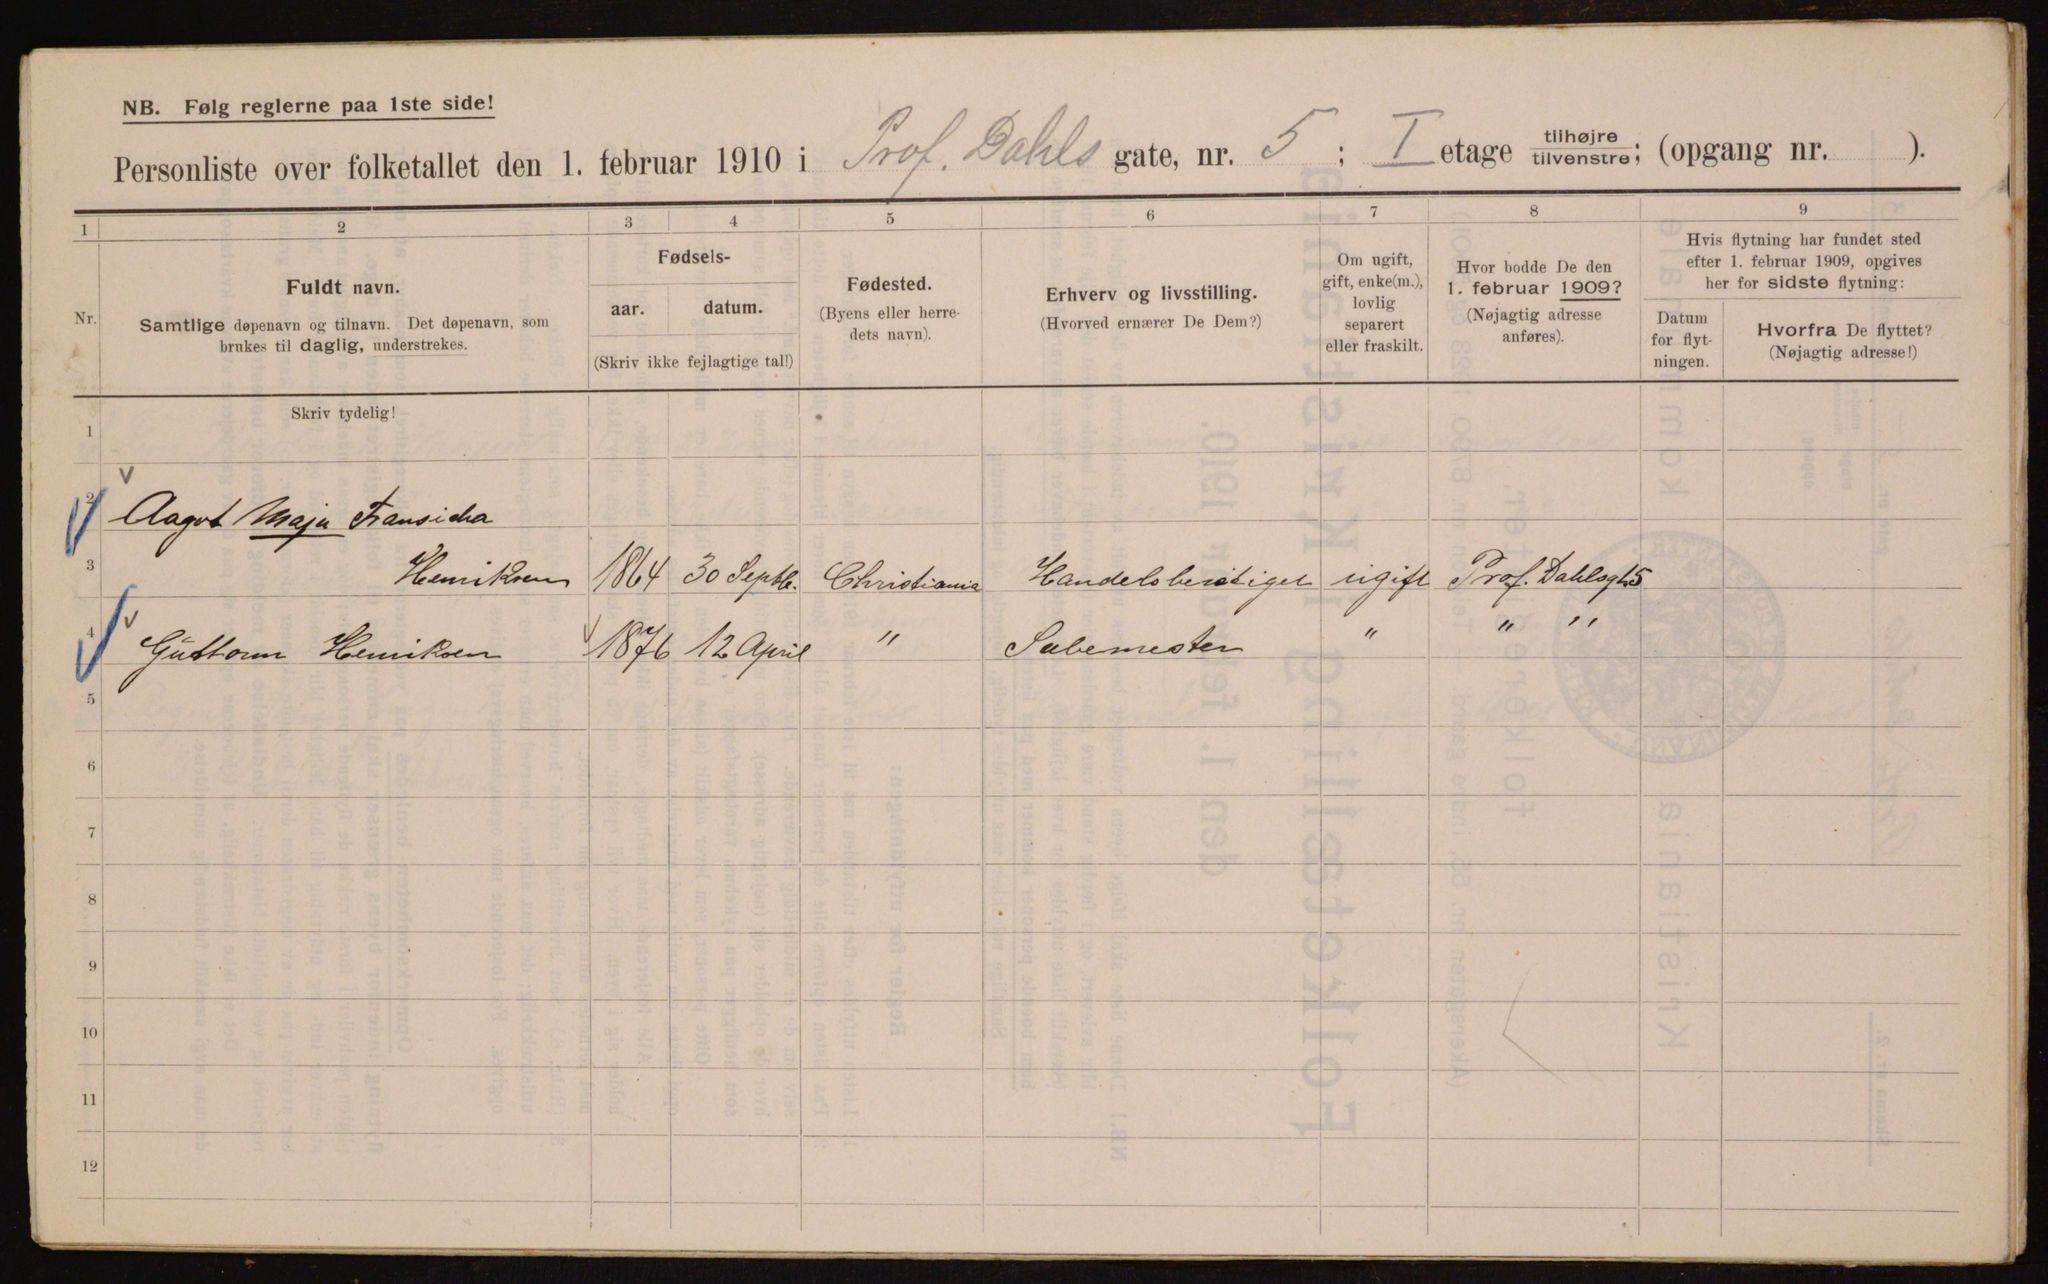 NB. Følg reglerne paa 1ste side!
Personliste over folketallet den 1. februar 1910 i Prof. Dahls gate, nr. 5 ; I etage tilhøjre/tilvenstre; (opgang nr. ).
1 2 3 4 5 6 7 8 9
Nr.
Fuldt navn.
Samtlige døpenavn og tilnavn. Det døpenavn, som
brukes til daglig, understrekes.
Fødsels-
aar. datum.
(Skriv ikke fejlagtige tal!)
Fødested.
(Byens eller herre-
dets navn).
Erhverv og livsstilling.
(Hvorved ernærer De Dem?)
Om ugift,
gift, enke(m.),
lovlig
separert
eller fraskilt.
Hvor bodde De den
1. februar 1909?
(Nøjagtig adresse
anføres).
Hvis flytning har fundet sted
efter 1. februar 1909, opgives
her for sidste flytning:
Datum
for flyt-
ningen.
Hvorfra De flyttet?
(Nøjagtig adresse!)
Skriv tydelig!
1
2 Aagot Maja
3 Henriksen 1864 30 Septb. Christiania ugift Prof. Dahlsgt 5
4 Guttorm Henriksen 1876 12 April " Sæbemester " " "
5
6
7
8
9
10
11
12